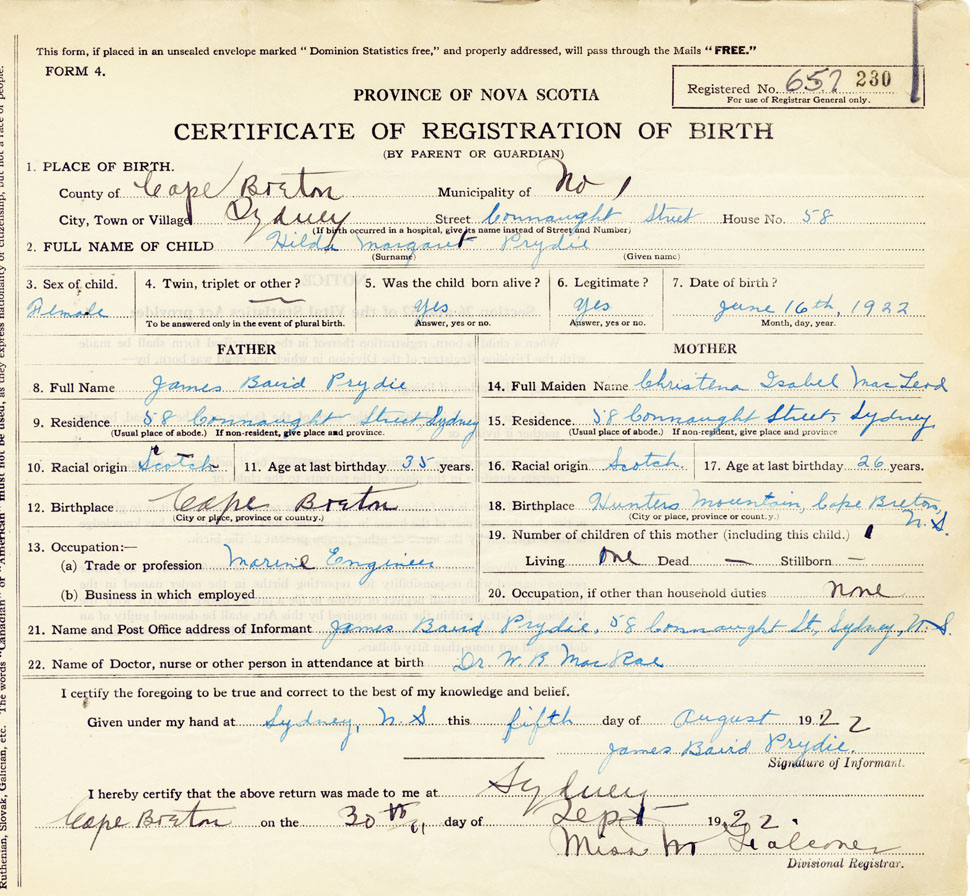 This form, if placed in an unsealed envelope marked "Dominion Statistics free," and properly addressed, will pass through the Mails "FREE."
FORM 4.
Registered No. 657 230
For use of Registrar General only.
PROVINCE OF NOVA SCOTIA
CERTIFICATE OF REGISTRATION OF BIRTH
(BY PARENT OR GUARDIAN)
1. PLACE OF BIRTH.
County of Cape Breton Municipality of No 1
City, Town or Village Sydney Street Connaught Street House No. 58
(If birth occurred in a hospital, give its name instead of Street and Number)
2. FULL NAME OF CHILD Hilda Margaret Prydie
(Surname) (Given name)
3. Sex of child. 4. Twin, triplet or other? 5. Was the child born alive? 6. Legitimate? 7. Date of birth?
Female — Yes Yes June 16th, 1922
To be answered only in the event of plural birth. Answer, yes or no. Answer, yes or no. Month, day, year.
FATHER MOTHER
8. Full Name James Baird Prydie
9. Residence 58 Connaught Street Sydney
(Usual place of abode.) If non-resident, give place and province.
10. Racial origin Scotch 11. Age at last birthday 35 years.
12. Birthplace Cape Breton
(City or place, province or country.)
13. Occupation:—
(a) Trade or profession Marine Engineer
(b) Business in which employed
14. Full Maiden Name Christena Isabel MacLeod
15. Residence 58 Connaught Street, Sydney
(Usual place of abode.) If non-resident, give place and province
16. Racial origin Scotch. 17. Age at last birthday 26 years.
18. Birthplace Hunters Mountain, Cape Breton, N.S.
(City or place, province or country.)
19. Number of children of this mother (including this child.) 1
Living One Dead — Stillborn —
20. Occupation, if other than household duties None
21. Name and Post Office address of Informant James Baird Prydie, 58 Connaught St., Sydney, N.S.
22. Name of Doctor, nurse or other person in attendance at birth Dr. W. R. MacRae
I certify the foregoing to be true and correct to the best of my knowledge and belief.
Given under my hand at Sydney, N.S this fifth day of August 1922
James Baird Prydie.
Signature of Informant.
I hereby certify that the above return was made to me at Sydney
Cape Breton on the 30th day of Sept 1922.
Miss M Falconer
Divisional Registrar.